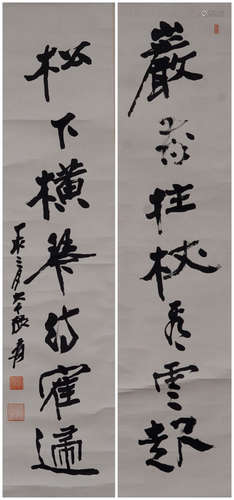 巖前拄杖看雲起
松下橫琴待鶴歸
丁亥三月 大千張爰